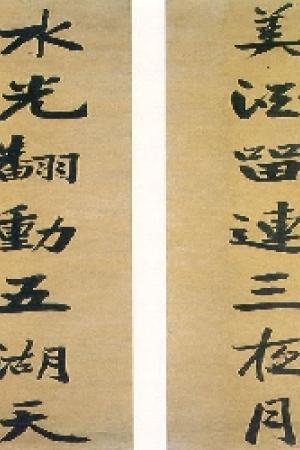 美酒留連三夜月
水光翻動五湖天